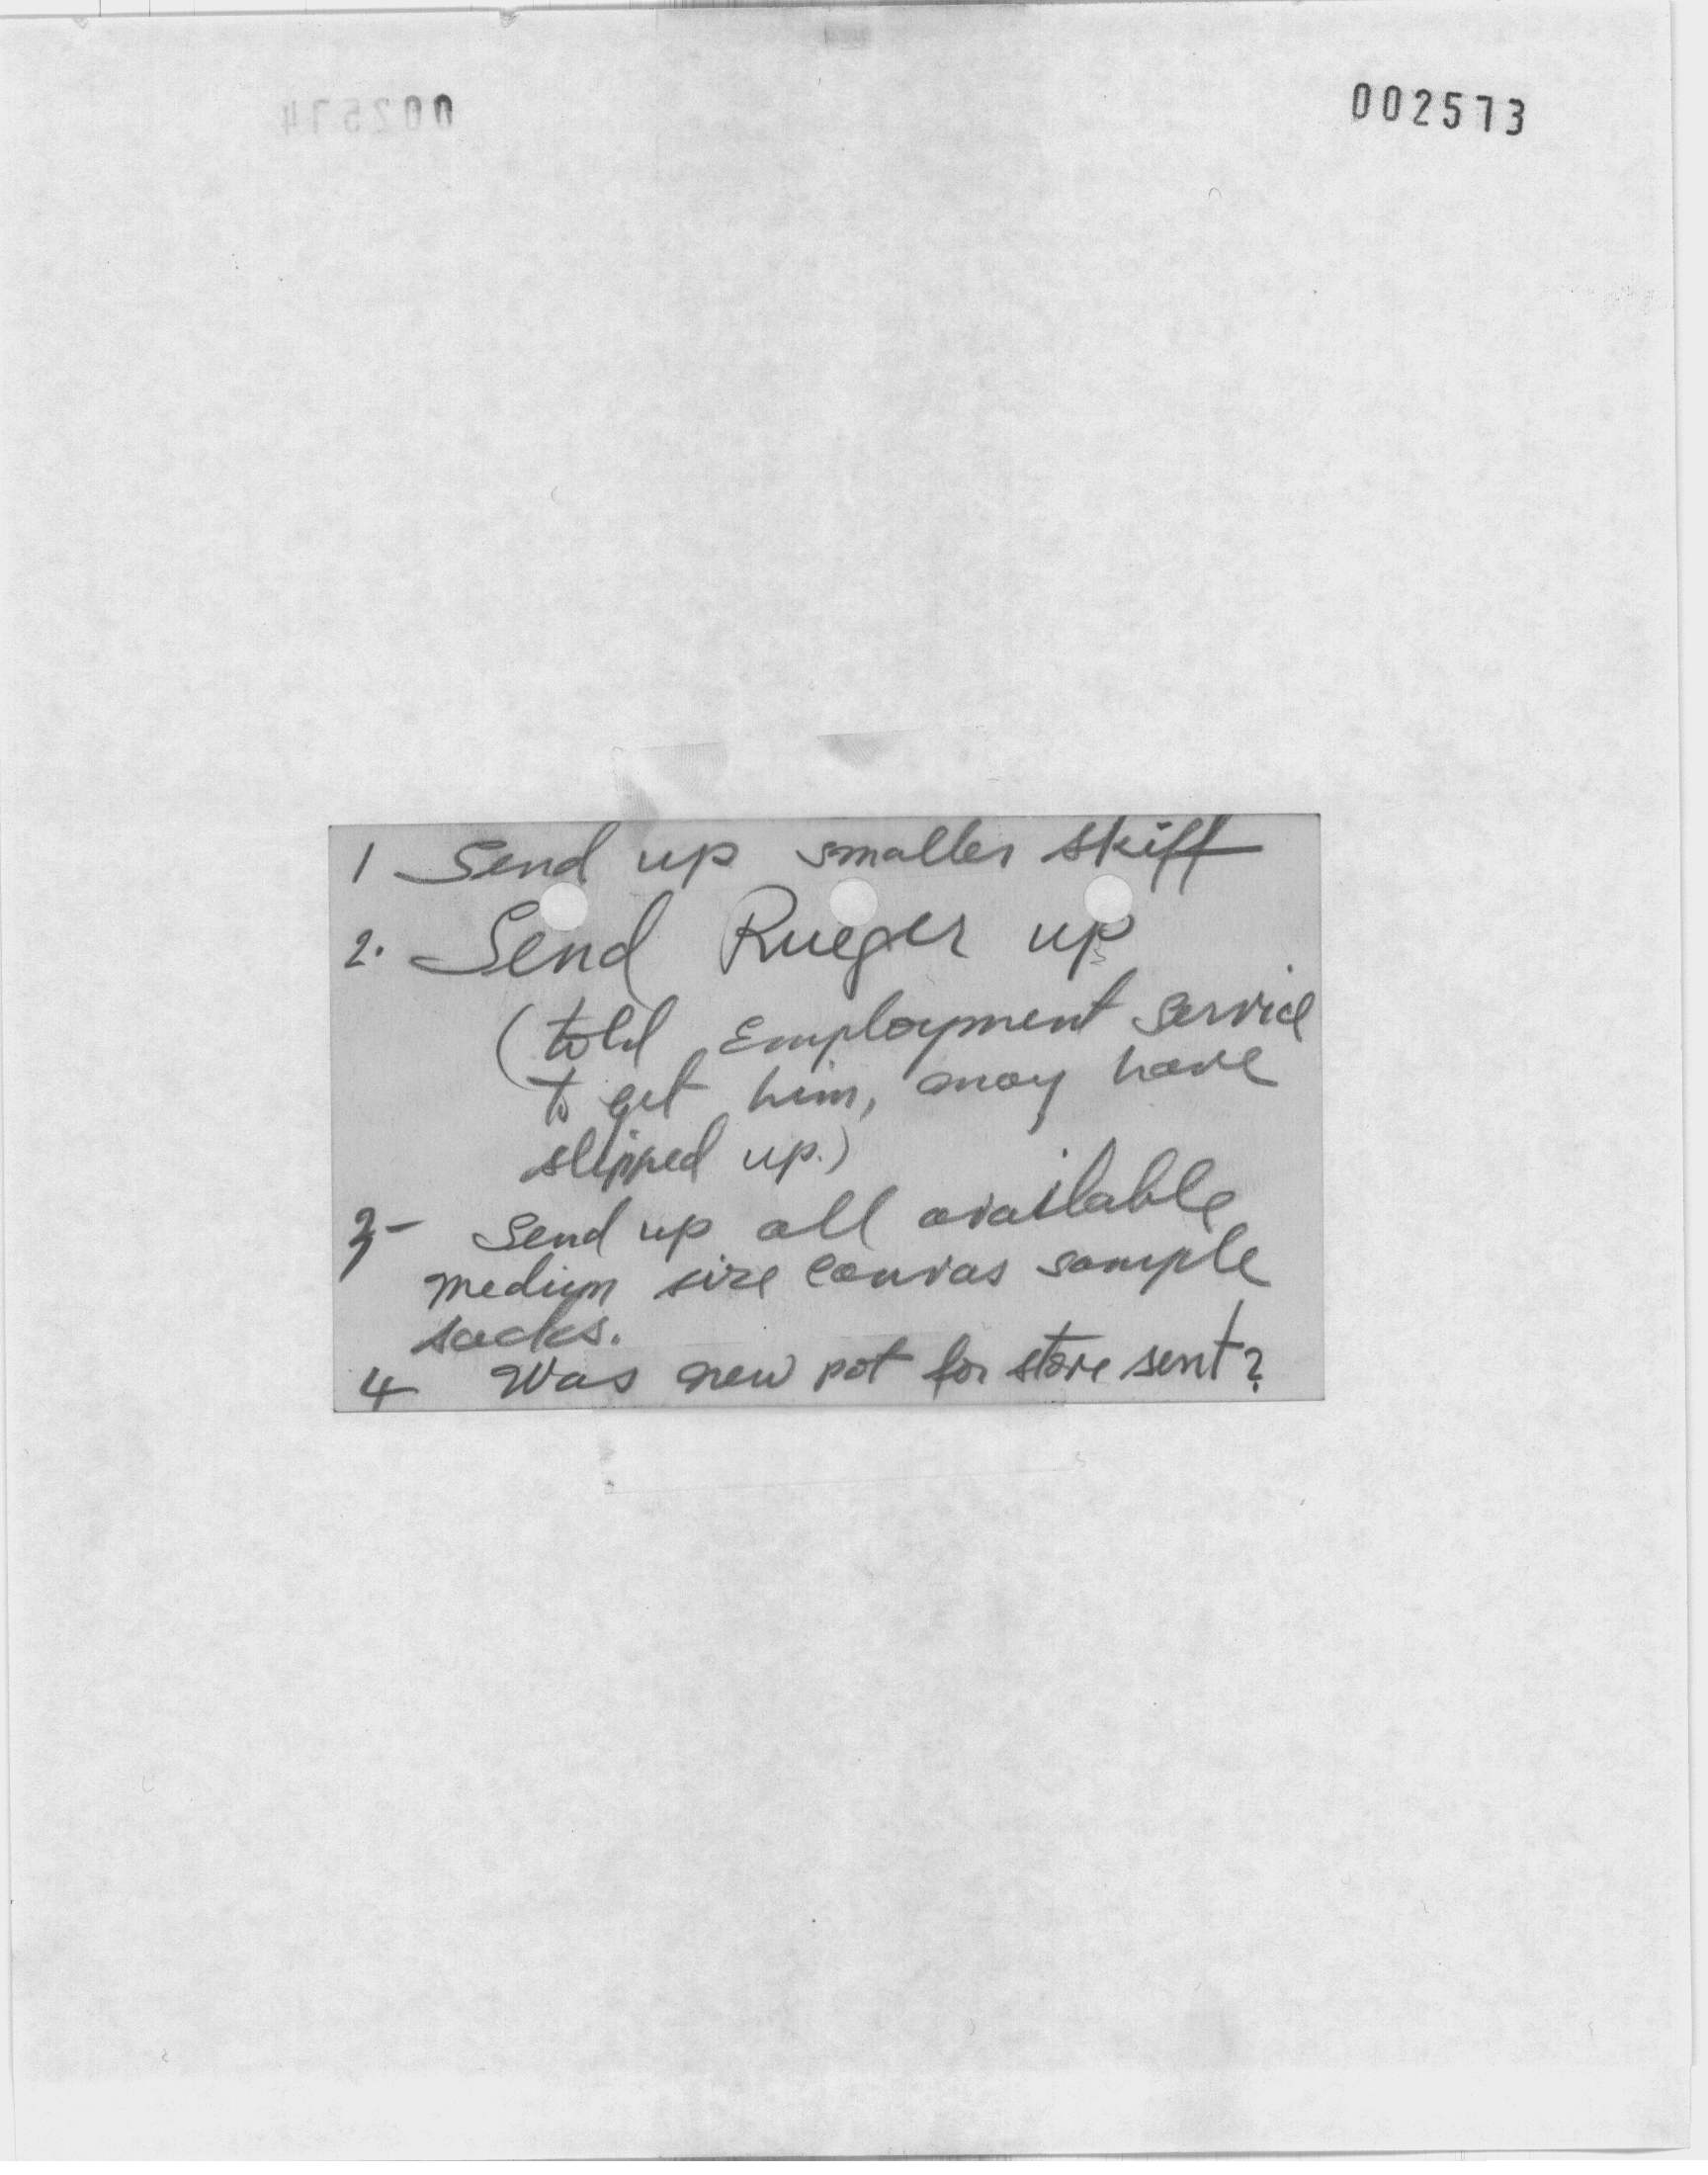 002573
1 Send up smaller skiff
2. Send Rueger up
(told Employment Service
to get him, may have
slipped up.)
3- Send up all available
medium size canvas sample
sacks.
4 Was new pot for stove sent?